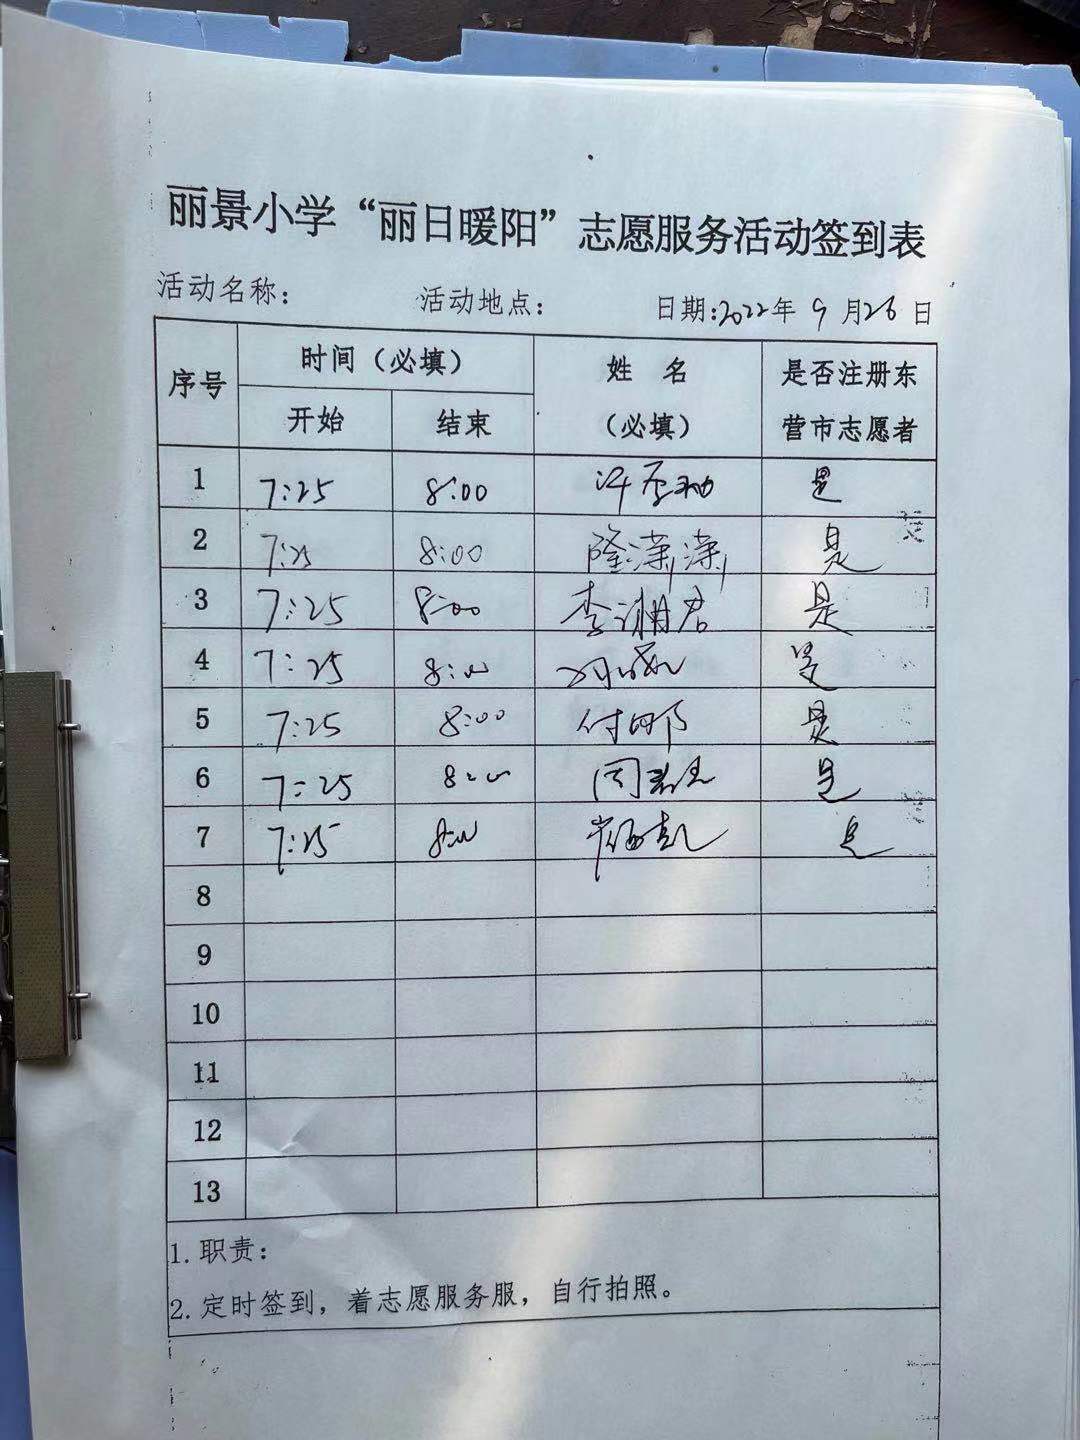 丽景小学“丽日暖阳”志愿服务活动签到表
活动名称： 活动地点： 日期:2022年 9 月26 日
序号 时间（必填） 姓 名 （必填） 是否注册东营市志愿者
开始 结束
1 7:25 8:00 是
2 7:25 8:00 隆潇潇 是
3 7:25 8:00 李湘君 是
4 7:25 8:00 是
5 7:25 8:00 付娜 是
6 7:25 8:00 是
7 7:25 8:00 是
8
9
10
11
12
13
1.职责：
2.定时签到，着志愿服务服，自行拍照。